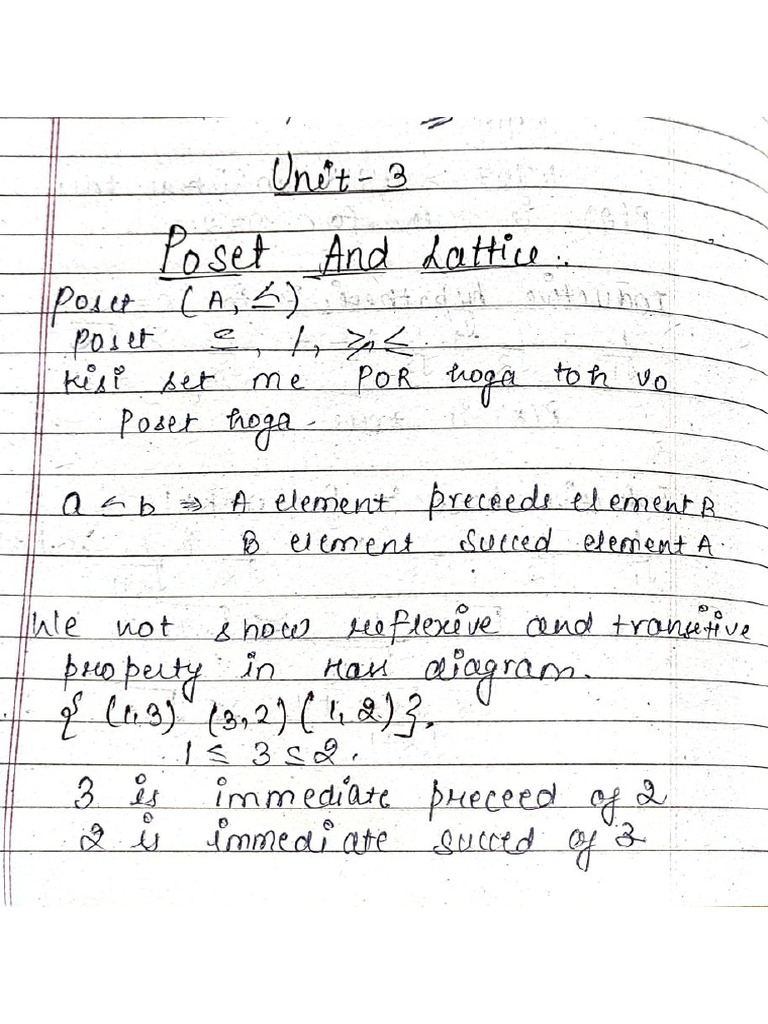 Unit - 3
Poset And Lattice.
Poset (A, ≤)
Poset ⊆, /, ≥, ≤.
Kisi set me POR hoga toh vo
Poset hoga.
a ≤ b ⇒ A element preceeds element B
B element succed element A.
We not show reflexive and transitive
property in Hass diagram.
{ (1,3) (3,2) (1,2) }.
1 ≤ 3 ≤ 2.
3 is immediate preceed of 2
2 is immediate succed of 3